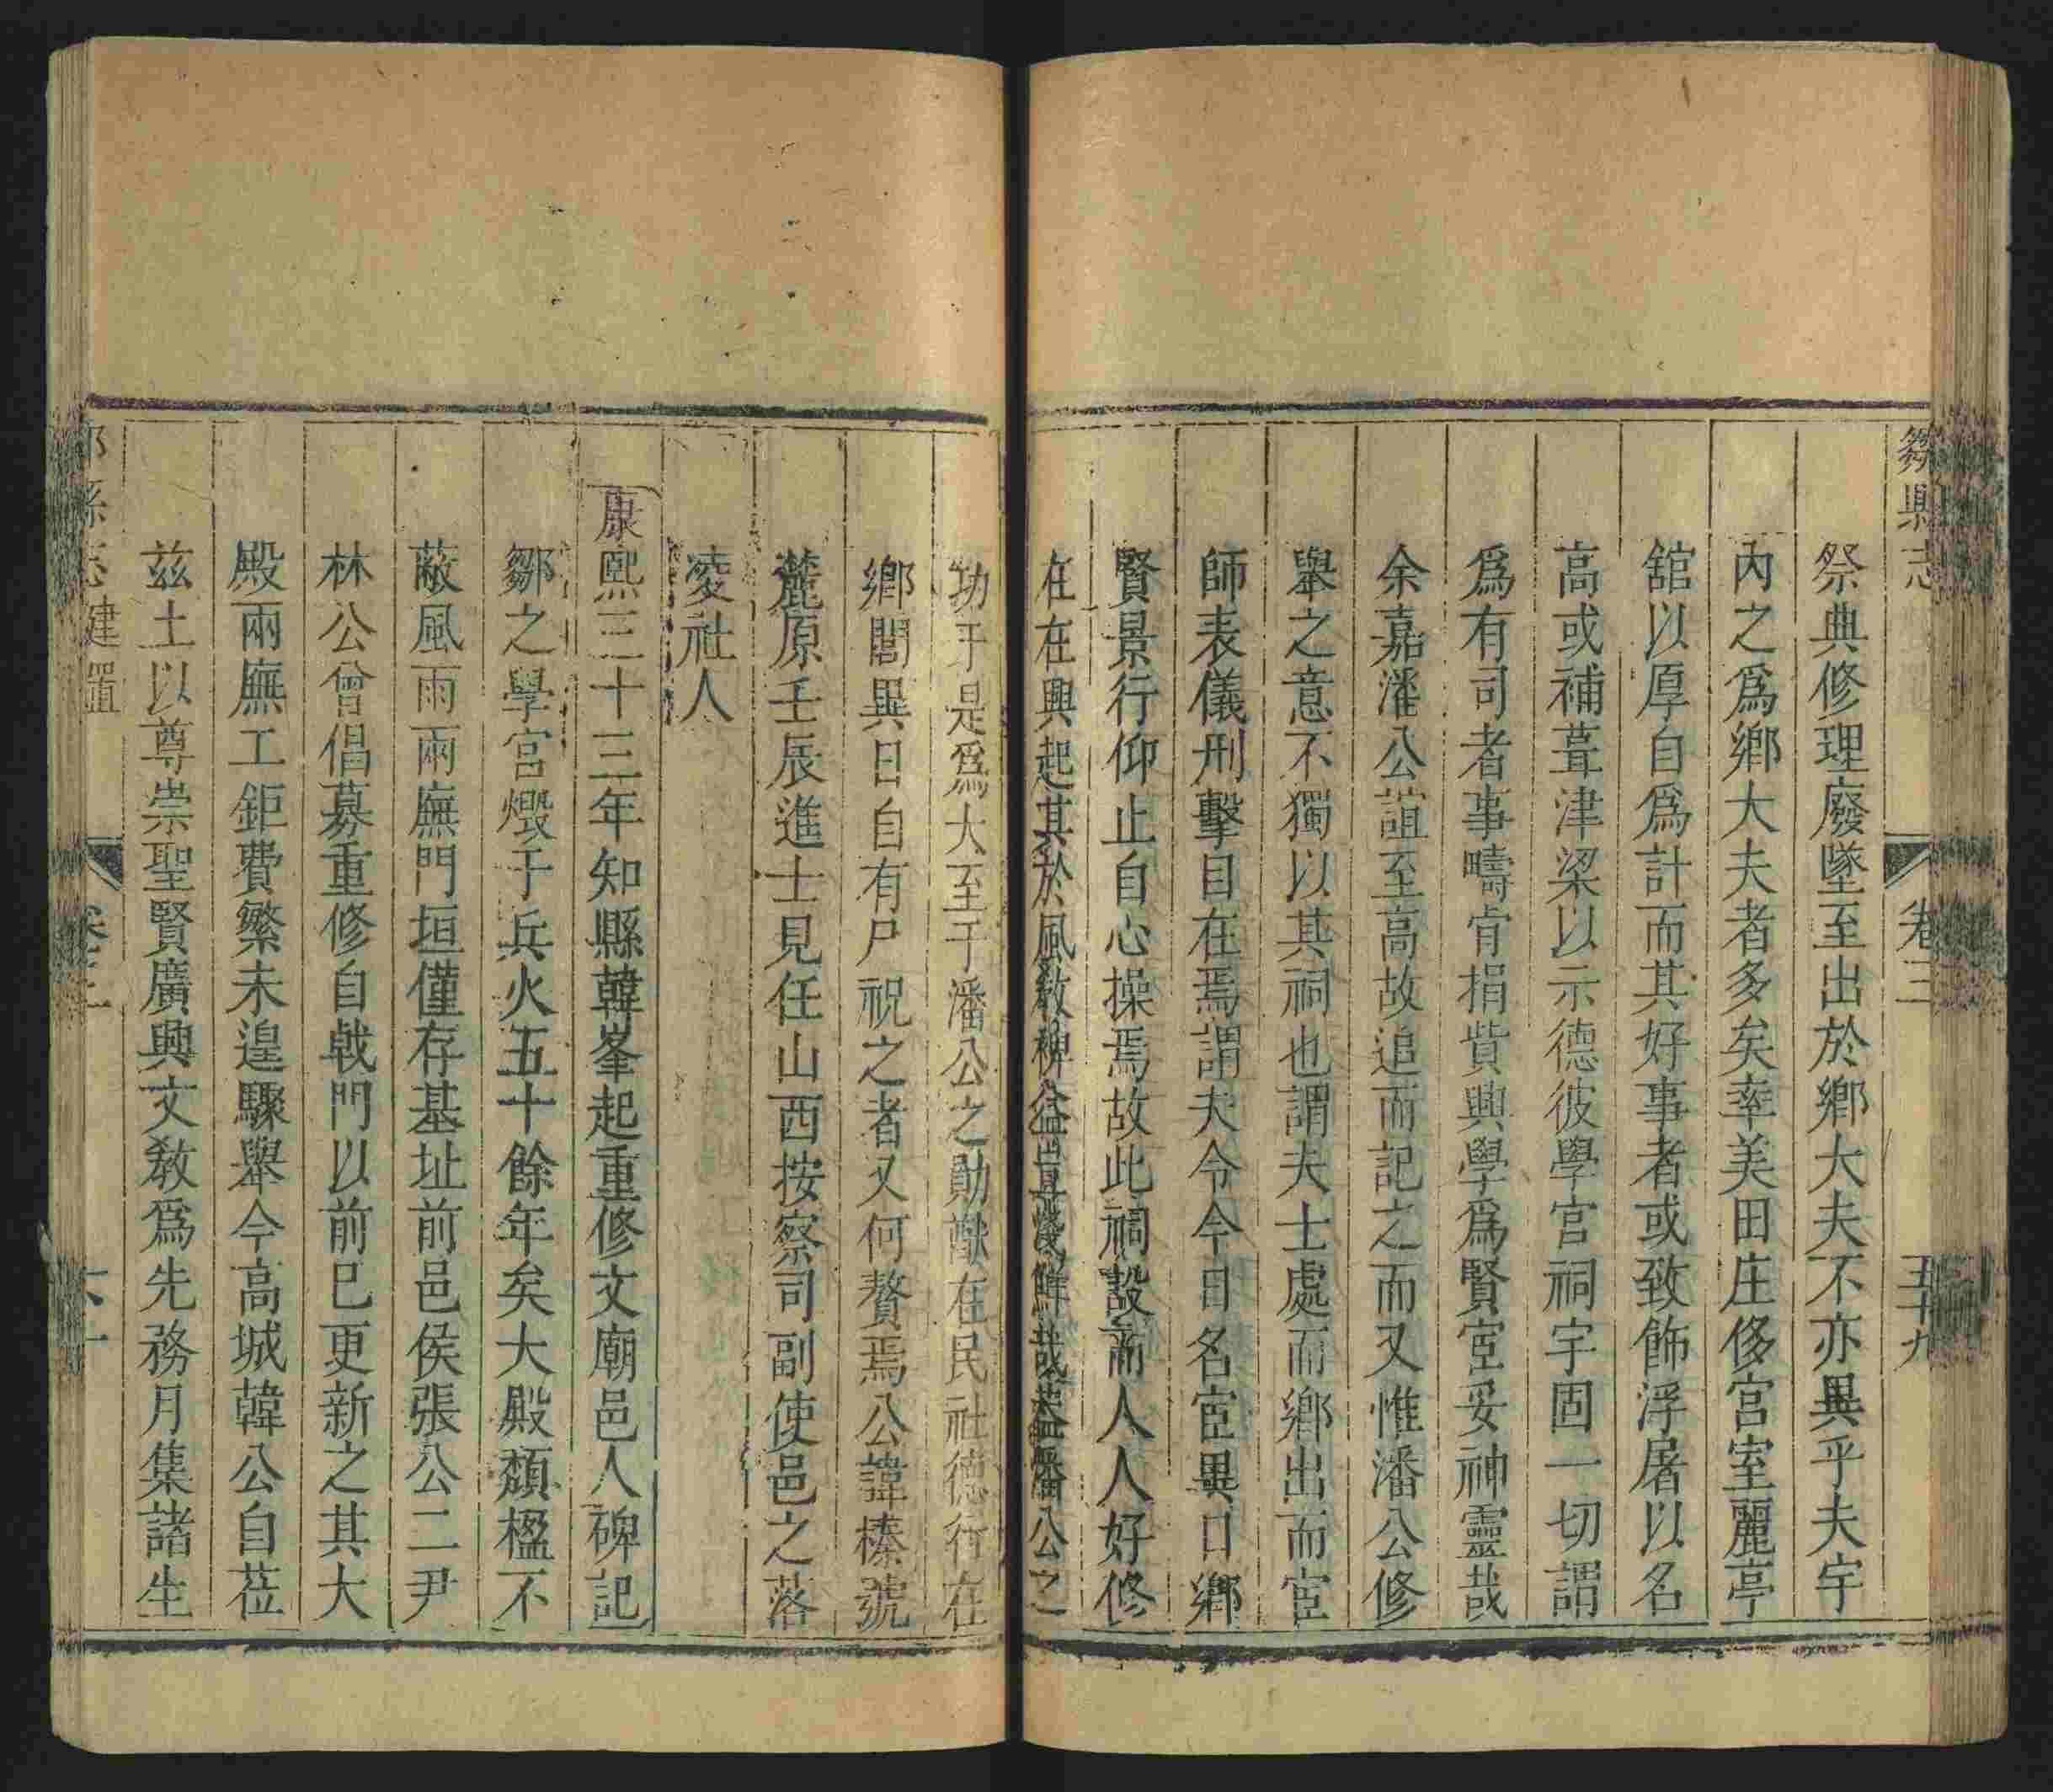 鄒縣志
卷三
五十九
祭典修理廢墜至出於鄉大夫不亦異乎夫宇
內之爲鄉大夫者多矣幸美田庄侈宮室麗亭
舘以厚自爲計而其好事者或致飾浮屠以名
高或補葺津梁以示德彼學宮祠宇固一切謂
爲有司者事疇肯捐貲興學爲賢宦妥神靈哉
余嘉潘公誼至高故追而記之而又惟潘公修
舉之意不獨以其祠也謂夫士處而鄉出而宦
師表儀刑擊目在焉謂夫今今日名宦異日鄉
賢景行仰止自心操焉故此祠設而人人好修
在在興起其於風敎裨益豈其淺鮮哉葢潘公之
功于是爲大至于潘公之勛猷在民社德行在
鄉閭異日自有尸祝之者又何贅焉公諱榛號
麓原壬辰進士見任山西按察司副使邑之落
凌社人
康熙三十三年知縣韓峯起重修文廟邑人碑記
鄒之學宮燬于兵火五十餘年矣大殿頹楹不
蔽風雨兩廡門垣僅存基址前邑侯張公二尹
林公曾倡募重修自戟門以前已更新之其大
殿兩廡工鉅費繁未遑驟舉今高城韓公自莅
兹土以尊崇聖賢廣興文敎爲先務月集諸生
縣志 建置
卷三
六十